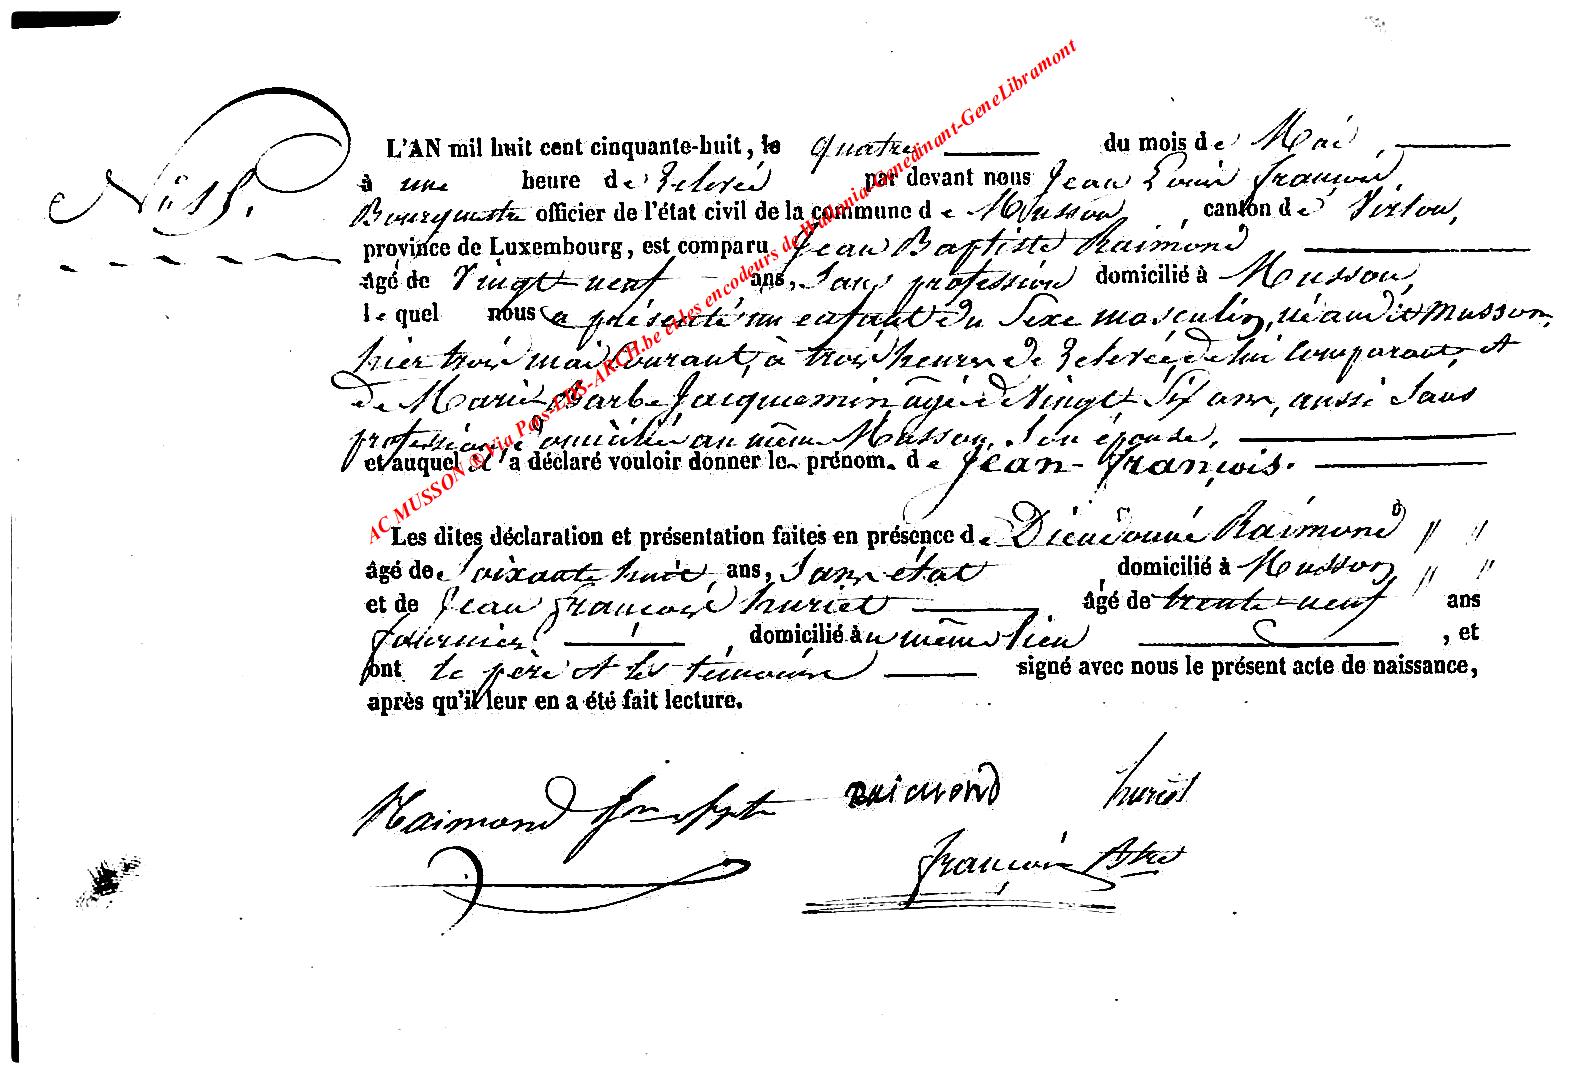 N° 15.
L'AN mil huit cent cinquante-huit, le quatre du mois de Mai,
à une heure de relevée par devant nous Jean Louis François,
Bourgmestre officier de l'état civil de la commune de Musson, canton de Virton,
province de Luxembourg, est comparu Jean Baptiste Raimond
âgé de Vingt neuf ans, Sans profession domicilié à Musson,
lequel nous a présenté un enfant du Sexe masculin, né audit Musson,
hier trois mai Courant, à trois heures de relevée, de lui Comparant, et
de Marie Barbe Jacquemin âgée de Vingt Six ans, aussi Sans
profession, domiciliée au même Musson, Son épouse,
et auquel il a déclaré vouloir donner le prénom. de Jean-François.
Les dites déclaration et présentation faites en présence de Dieudonné Raimond " "
âgé de Soixante huit ans, Sans état domicilié à Musson " "
et de Jean François huriet âgé de trente-neuf ans
fournier, domicilié au même lieu , et
ont le père et les témoins signé avec nous le présent acte de naissance,
après qu'il leur en a été fait lecture.
Raimond Jean Bpte RAIMOND huriet
François
AC MUSSON ® Via Pars-LUX-ARCH.be et les encodeurs de Wallonia-Genedinant-GeneLibramont